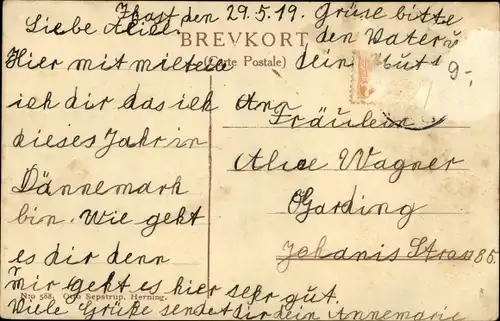 Ihast den 29.5.19. Grüse bitte
Liebe Alise. den Vater u
BREVKORT
(Carte Postale)
dein Mutt
9-
Hier mit mitteile
ich dir das ich
dieses Jahr in
Dännemark
bin. Wie geht
es dir denn
mir geht es hier sehr gut.
Viele Grüße sendet dir dein Annemarie
An
Fräulein
Alice Wagner
Garding
Johanis Strass 85.
Nr. 568. Otto Sepstrup, Herning.